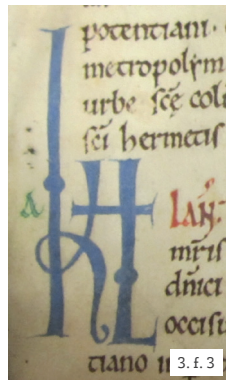 potentiam ·
metropolym
urbe sc̄e col
sc̄i hermetis
A
KL IAN̄·
mr̄is
dn̄ici
occisi
tiano
3. f. 3